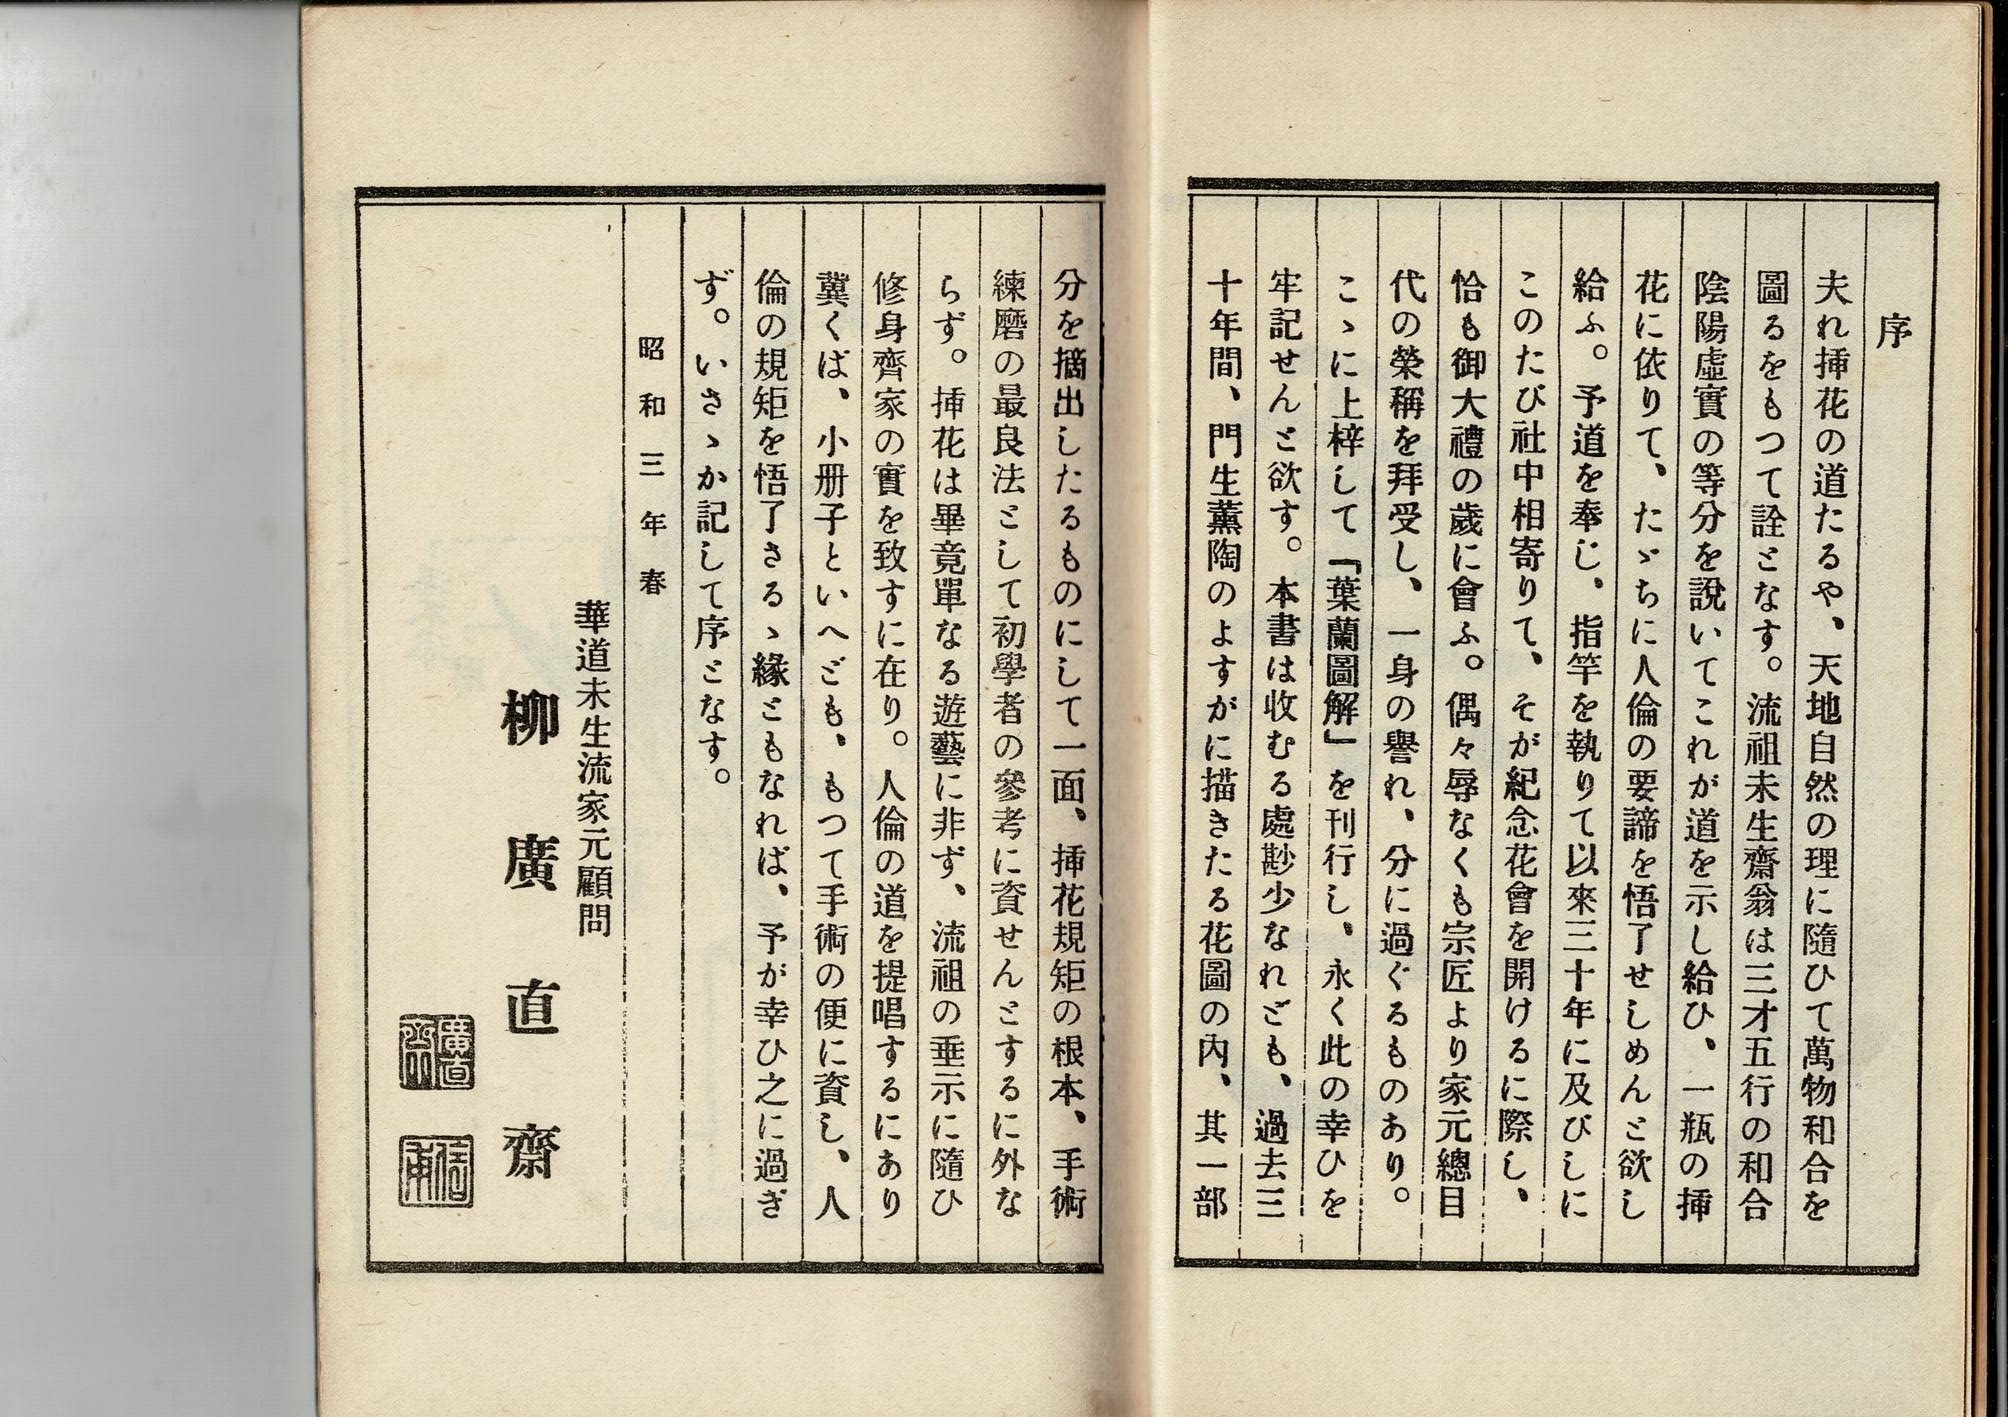 序
夫れ挿花の道たるや、天地自然の理に隨ひて萬物和合を
圖るをもつて詮となす。流祖未生齋翁は三才五行の和合
陰陽虛實の等分を說いてこれが道を示し給ひ、一瓶の挿
花に依りて、たゞちに人倫の要諦を悟了せしめんと欲し
給ふ。予道を奉じ、指竿を執りて以來三十年に及びしに
このたび社中相寄りて、そが紀念花會を開けるに際し、
恰も御大禮の歲に會ふ。偶々辱なくも宗匠より家元總目
代の榮稱を拜受し、一身の譽れ、分に過ぐるものあり。
こゝに上梓して「葉蘭圖解」を刊行し、永く此の幸ひを
牢記せんと欲す。本書は收むる處尠少なれども、過去三
十年間、門生薰陶のよすがに描きたる花圖の內、其一部
分を摘出したるものにして一面、挿花規矩の根本、手術
練磨の最良法として初學者の參考に資せんとするに外な
らず。挿花は畢竟單なる遊藝に非ず、流祖の垂示に隨ひ
修身齊家の實を致すに在り。人倫の道を提唱するにあり
冀くば、小册子といへども、もつて手術の便に資し、人
倫の規矩を悟了さるゝ緣ともなれば、予が幸ひ之に過ぎ
ず。いさゝか記して序となす。
昭和三年春
華道未生流家元顧問
柳廣直齋
廣直齋